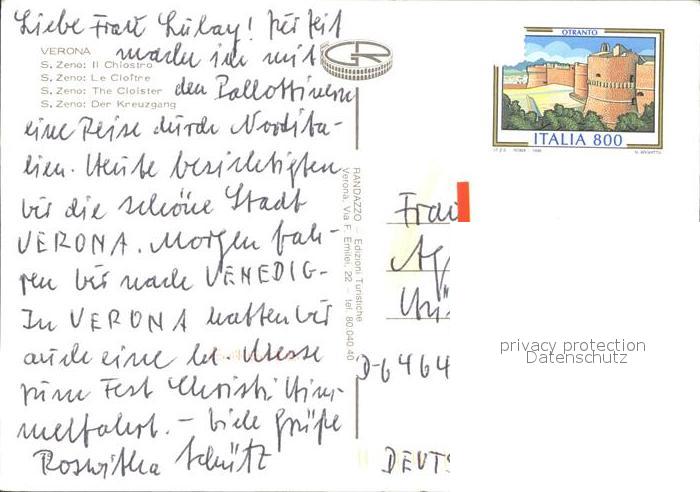 Liebe Frau Lulay! Zur Zeit
mache ich mit
den Pallottinern
eine Reise durch Nordita-
lien. Heute besichtigten
wir die schöne Stadt
VERONA. Morgen fah-
ren wir nach VENEDIG.
In VERONA hatten wir
auch eine hl. Messe
zum Fest Christi Him-
melfahrt. – Viele Grüße
Roswitha Schütz
VERONA
S. Zeno: Il Chiostro
S. Zeno: Le Cloître
S. Zeno: The Cloister
S. Zeno: Der Kreuzgang
RANDAZZO – Edizioni Turistiche
Verona, Via F. Emilei, 22 – tel. 80.040.40
OTRANTO
ITALIA 800
Frau
D-6464
DEUTS
privacy protection
Datenschutz